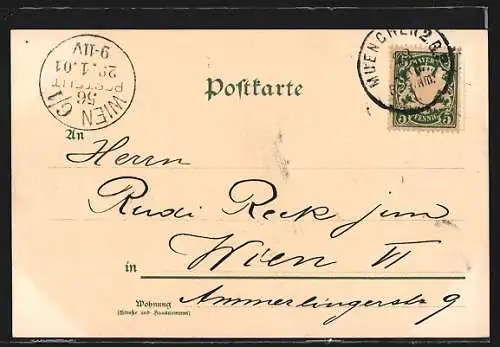 MUENCHEN 2. B.Z.
BAYERN
5 5
PFENNIG
WIEN 6/1
56
BESTELLT
29.1.01
9-11V
Postkarte
An
Herrn
Rudi Reck jun
in Wien VI
Wohnung
(Straße und Hausnummer)
Ammerlingerstr 9